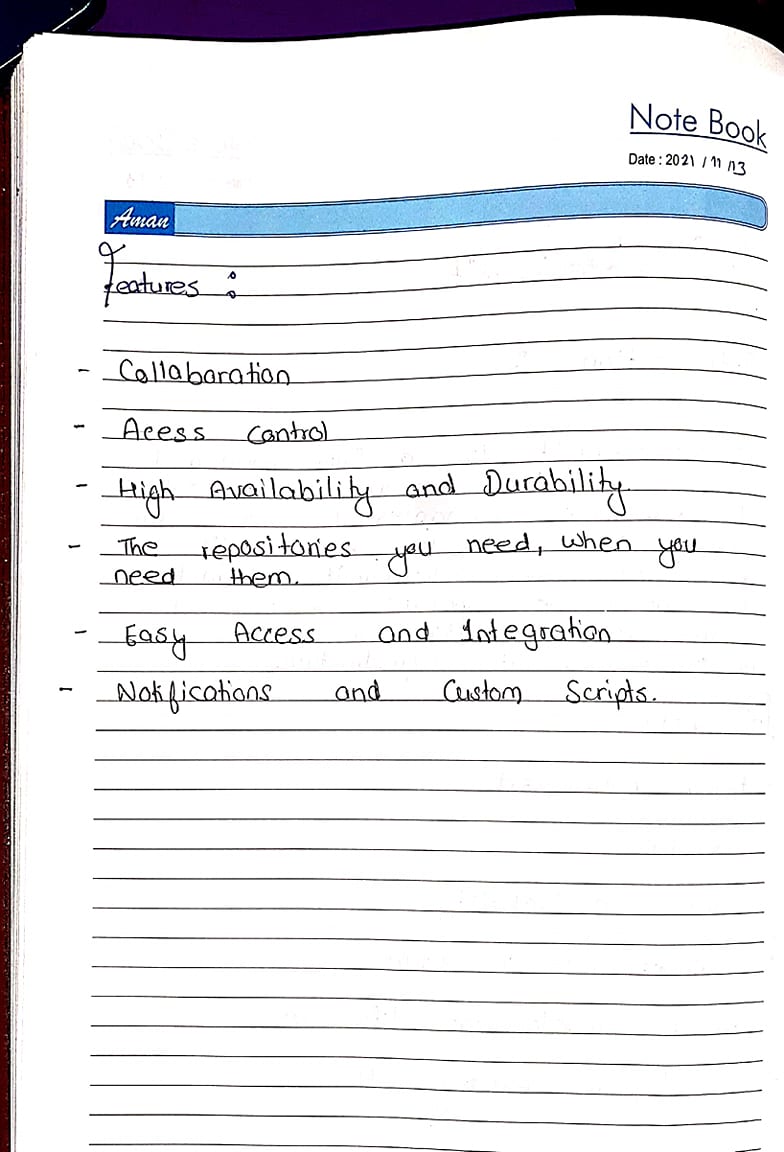 Note Book
Date : 2021 / 11 /13
Aman
features :
- Collaboration
- Acess Control
- High Availability and Durability.
- The repositories you need, when you
need them.
- Easy Access and Integration
- Notifications and Custom Scripts.